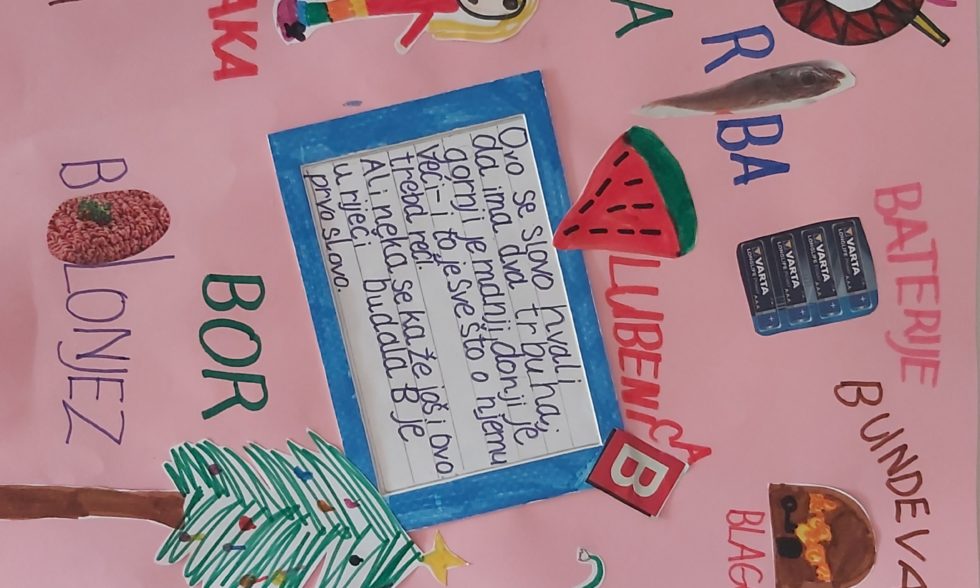 BATERIJE
BUNDEVA
VARTA
LONGLIFE
VARTA
LONGLIFE
VARTA
LONGLIFE
VARTA
LONGLIFE
R BA
BLAG
LUBENICA
B
Ovo se slovo hvali
da ima dva trbuha;
gornji je manji, donji je
veći - i to je sve što o njemu
treba reći.
Ali neka se kaže još i ovo
u riječi budala B je
prvo slovo.
AKA
BOR
B LONJEZ